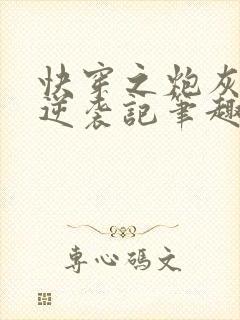 快穿之炮灰
逆袭記筆趣
專心碼文